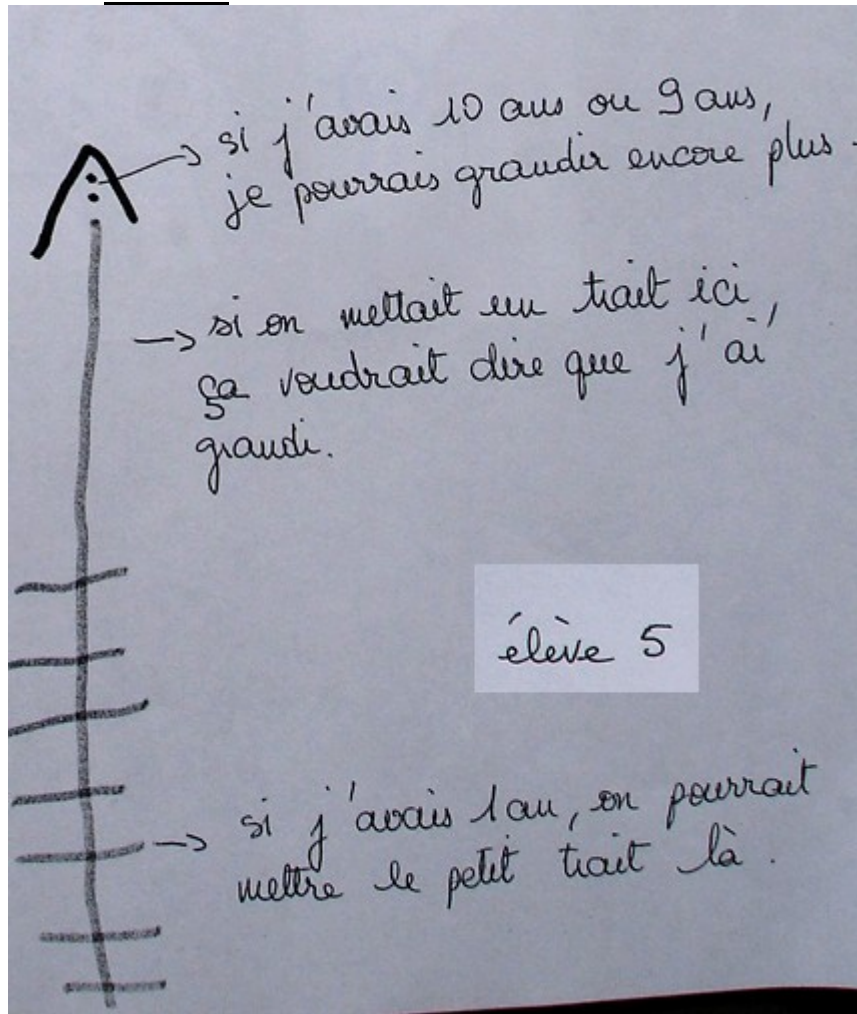 si j'avais 10 ans ou 9 ans,
je pourrais grandir encore plus.
si on mettait un trait ici,
ça voudrait dire que j'ai
grandi.
élève 5
si j'avais 1 an, on pourrait
mettre le petit trait là.